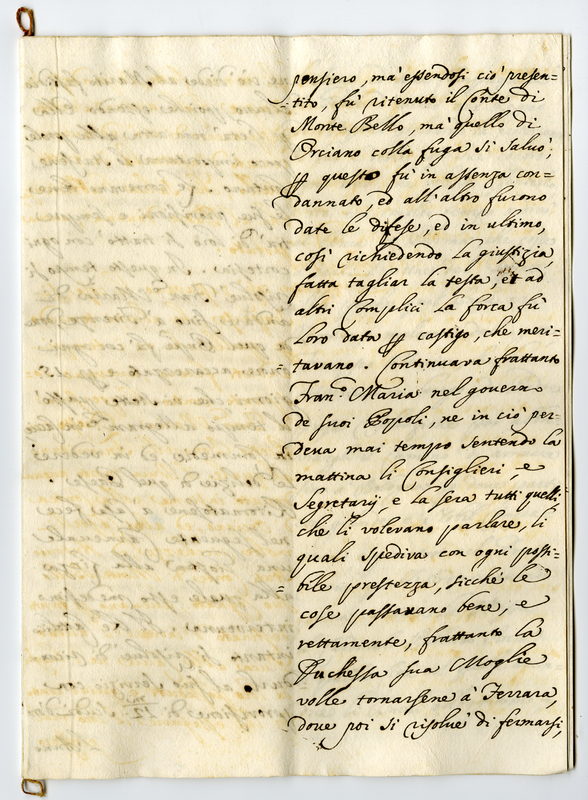 pensiero, mà essendosi ciò presen=
tito, fù ritenuto il Conte di
Monte Bello, mà quello di
Orciano colla fuga si salvò;
questo fù in assenza con=
dannato, ed all'altro furono
date le difese, ed in ultimo,
così richiedendo la giustizia,
fatta tagliar la testa, et ad
altri Complici la forca fù
loro data castigo, che meri=
tavano. Continuava frattanto
Fran.o Maria nel governo
de suoi Popoli, ne in ciò per=
deva mai tempo sentendo la
mattina li Consiglieri, e
Segretarij, e la sera tutti quelli
che li volevano parlare, li
quali spediva con ogni possi=
bile prestezza, sicchè le
cose passavano bene, e
rettamente, frattanto la
Duchessa sua Moglie
volle tornarsene à Ferrara,
dove poi si risolvè di fermarsi,